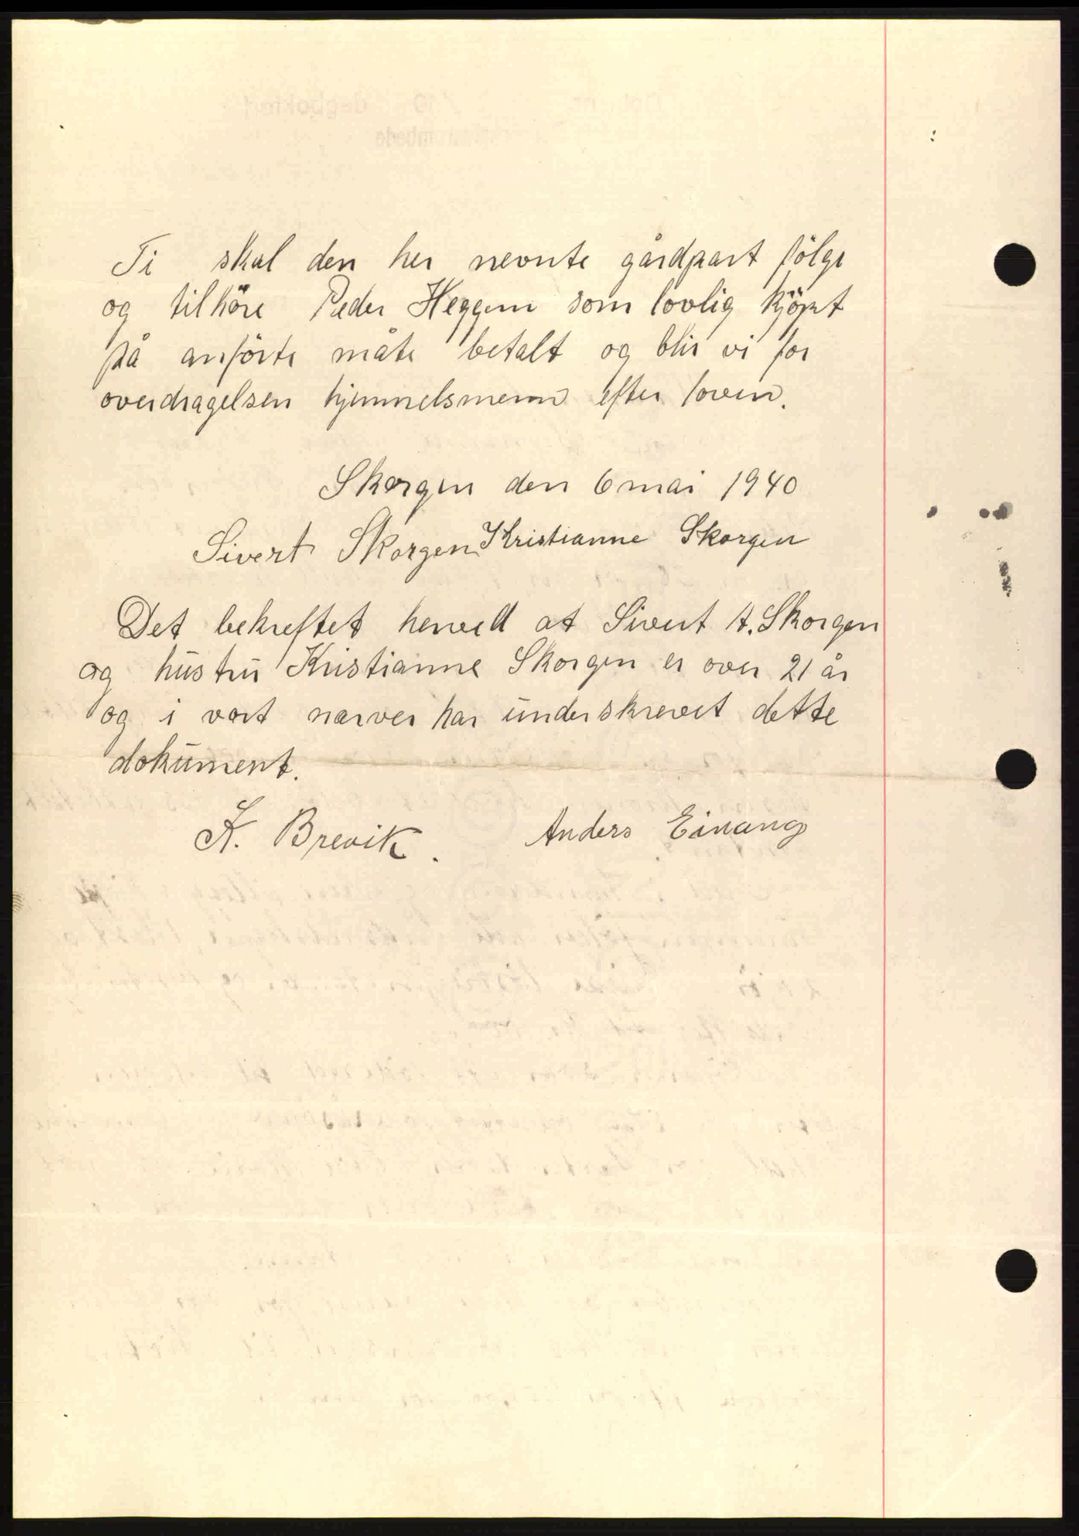 Ti skal den her nevnte gårdpart følge
og tilhöre Peder Heggem som lovlig kjöpt
på anförte måte betalt og blir vi for
overdragelsen hjemmelsmenn efter loven.
Skorgen den 6 mai 1940
Sivert Skorgen Kristianne Skorgen
Det bekreftet herved at Sivert A. Skorgen
og hustru Kristianne Skorgen er over 21 år
og i vort nærver har underskrevet dette
dokument.
K. Brevik. Anders Einang